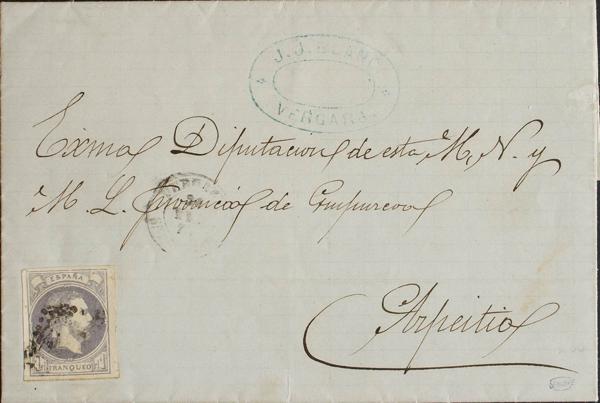 J. J. BLANC
VERGARA
Exma Diputacion de esta M. N. y
M. L. Provincia de Guipuzcoa
Azpeitia
ESPAÑA
FRANQUEO